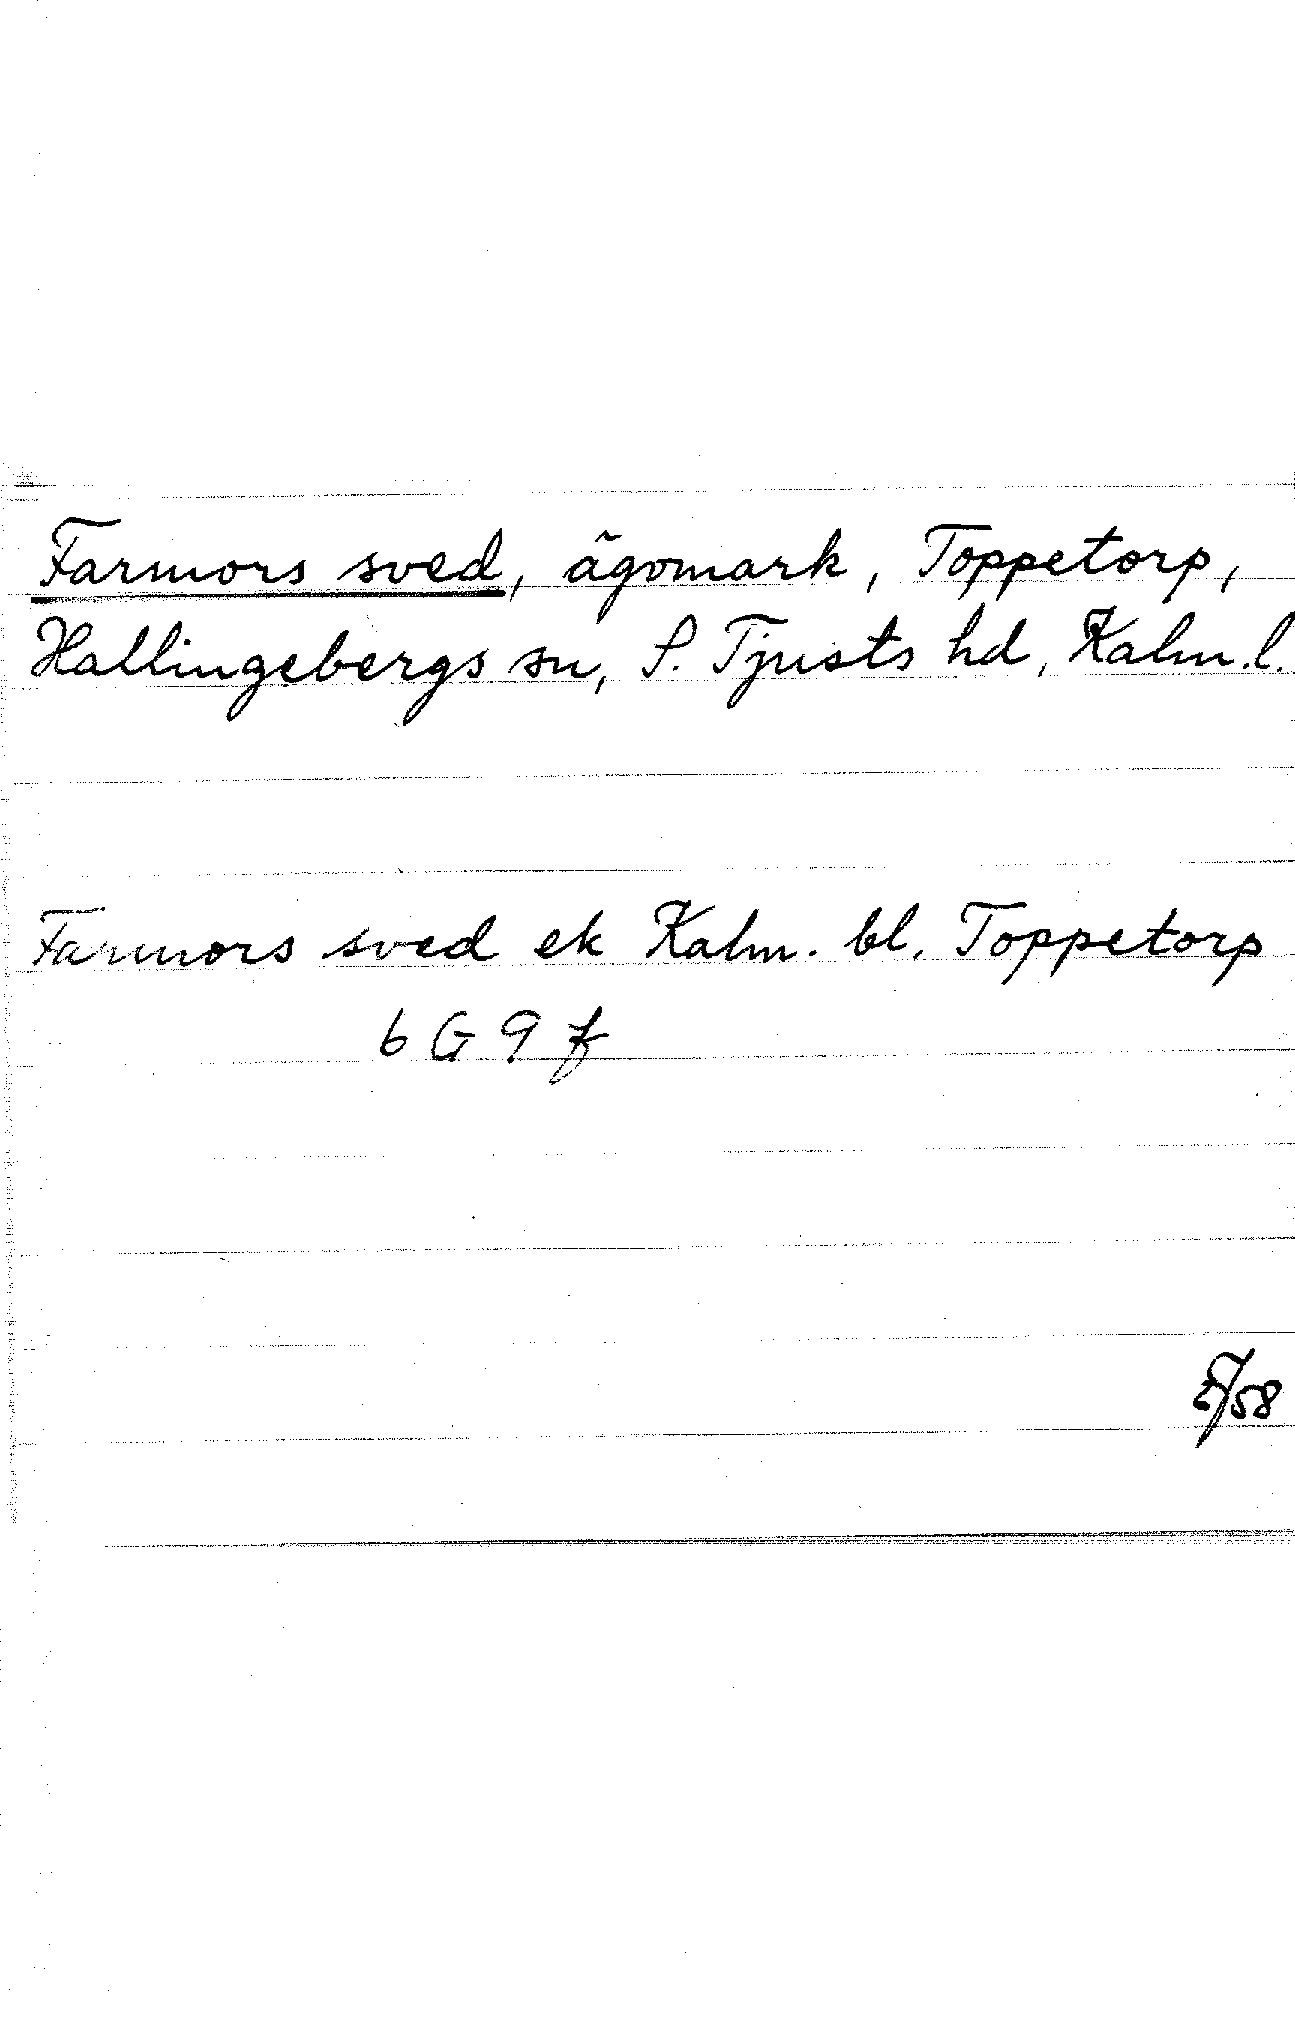 Farmors sved, ägomark, Toppetorp,
Hallingebergs sn, S. Tjusts hd, Kalm. l.
Farmors sved ek Kalm. bl. Toppetorp
6 G 9 f
/58